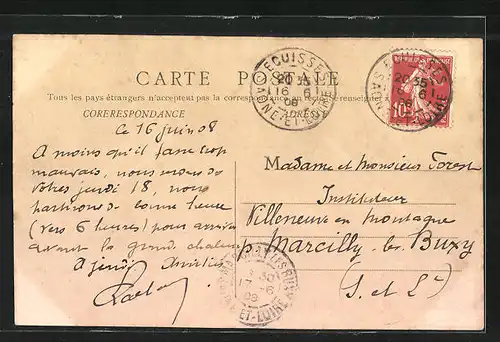 CARTE POSTALE
Tous les pays étrangers n'acceptent pas la correspondance au recto
CORRESPONDANCE
ADRESSE
ECUISSES
20
16 6
08
SAONE-ET-LOIRE
ECUISSES
16 6
08
10
Ce 16 juin 08
A moins qu'il fasse trop
mauvais, nous
jeudi 18, nous
partirons de bonne heure
(vers 6 heures) pour arriver
avant la grande chaleur
A jeudi Amitiés
Madame et Monsieur Forest
Instituteur
Villeneuve en Montagne
p. Marcilly les Buxy
(S. et L.)
30
-6
08
ET-LOIRE